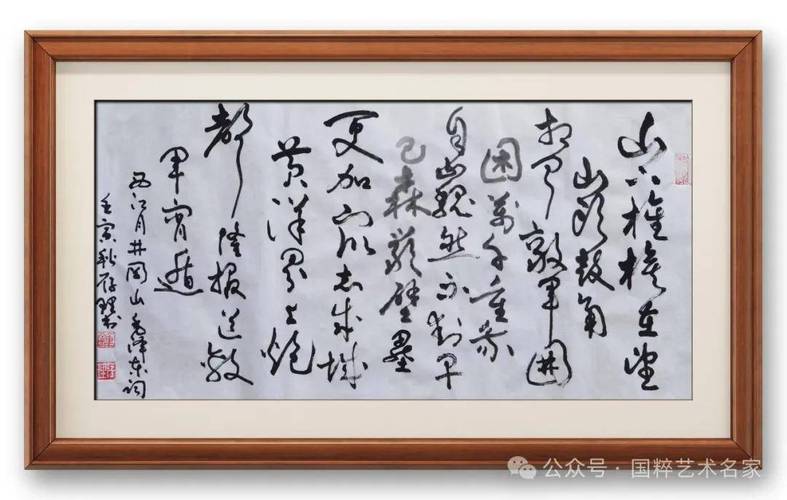 山下旌旗在望
山头鼓角
相闻敌军围
困万千重我
自岿然不动早
已森严壁垒
更加众志成城
黄洋界上炮
声隆报道敌
军宵遁
西江月井冈山毛泽东词
壬寅秋存书
公众号·国粹艺术名家